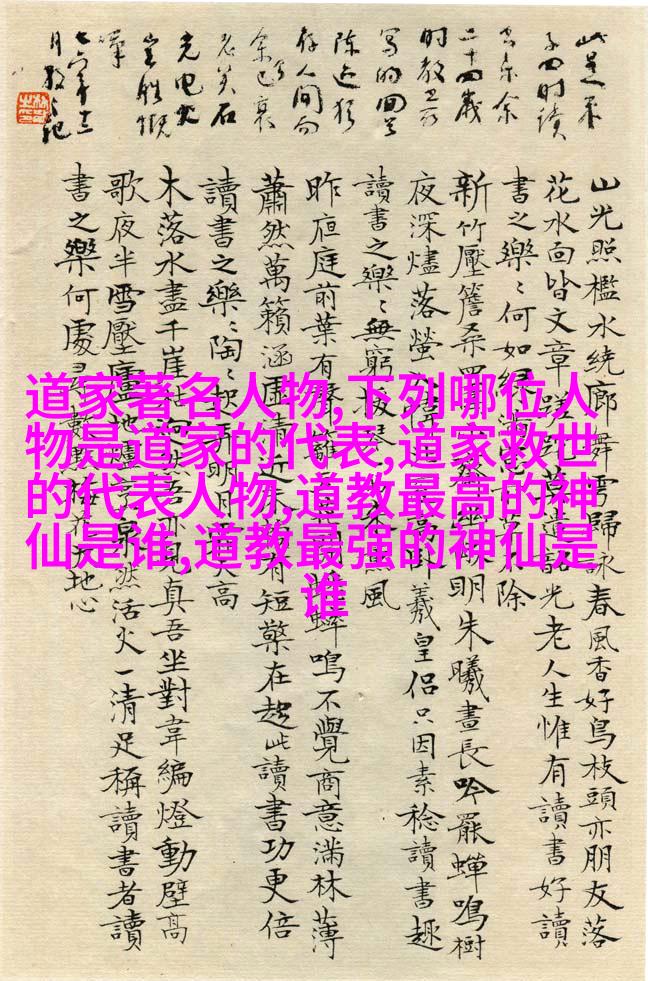 道家著名人物,下列哪位人
物是道家的代表,道家救世
的代表人物,道教最高的神
仙是谁,道教最强的神仙是
谁
此是
子四时读
书乐余
二十四岁
时教
写的回首
陈迹犹
存人间而
余已衰
老矣石
山光照檻水繞廊舞雩歸詠春風香好鳥枝頭亦朋友落
花水面皆文章蹉跎莫遣韶光老人生惟有讀書好讀
書之樂〻何如綠滿窗前草不除
新竹壓簷桑四圍小齋幽敞明朱曦晝長吟罷蟬鳴樹
夜深燼落螢入幃北窗高臥羲皇侶只因素稔讀書趣
讀書之樂〻無窮撥琴一奏來薰風
昨夜庭前葉有聲籬豆花開蟋蟀鳴不覺商意滿林薄
蕭然萬籟涵虛清近床賴有短檠在趁此讀書功更倍
讀書之樂〻陶〻起弄明月霜天高
木落水盡千崖枯迥然吾亦見真吾坐對韋編燈動壁高
歌夜半雪壓廬地爐茶鼎烹活火一清足稱讀書者讀
書之樂何處尋數點梅花天地心